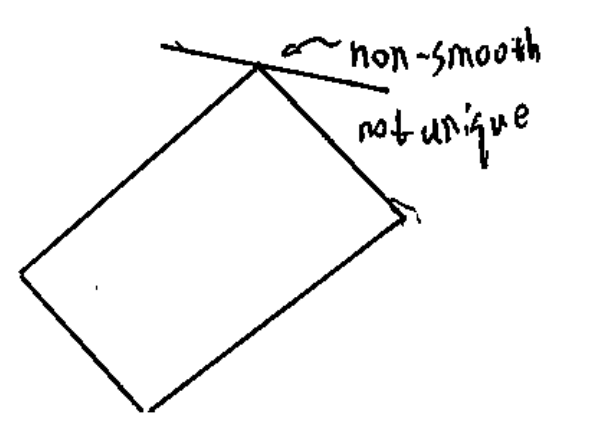 non-smooth
not unique